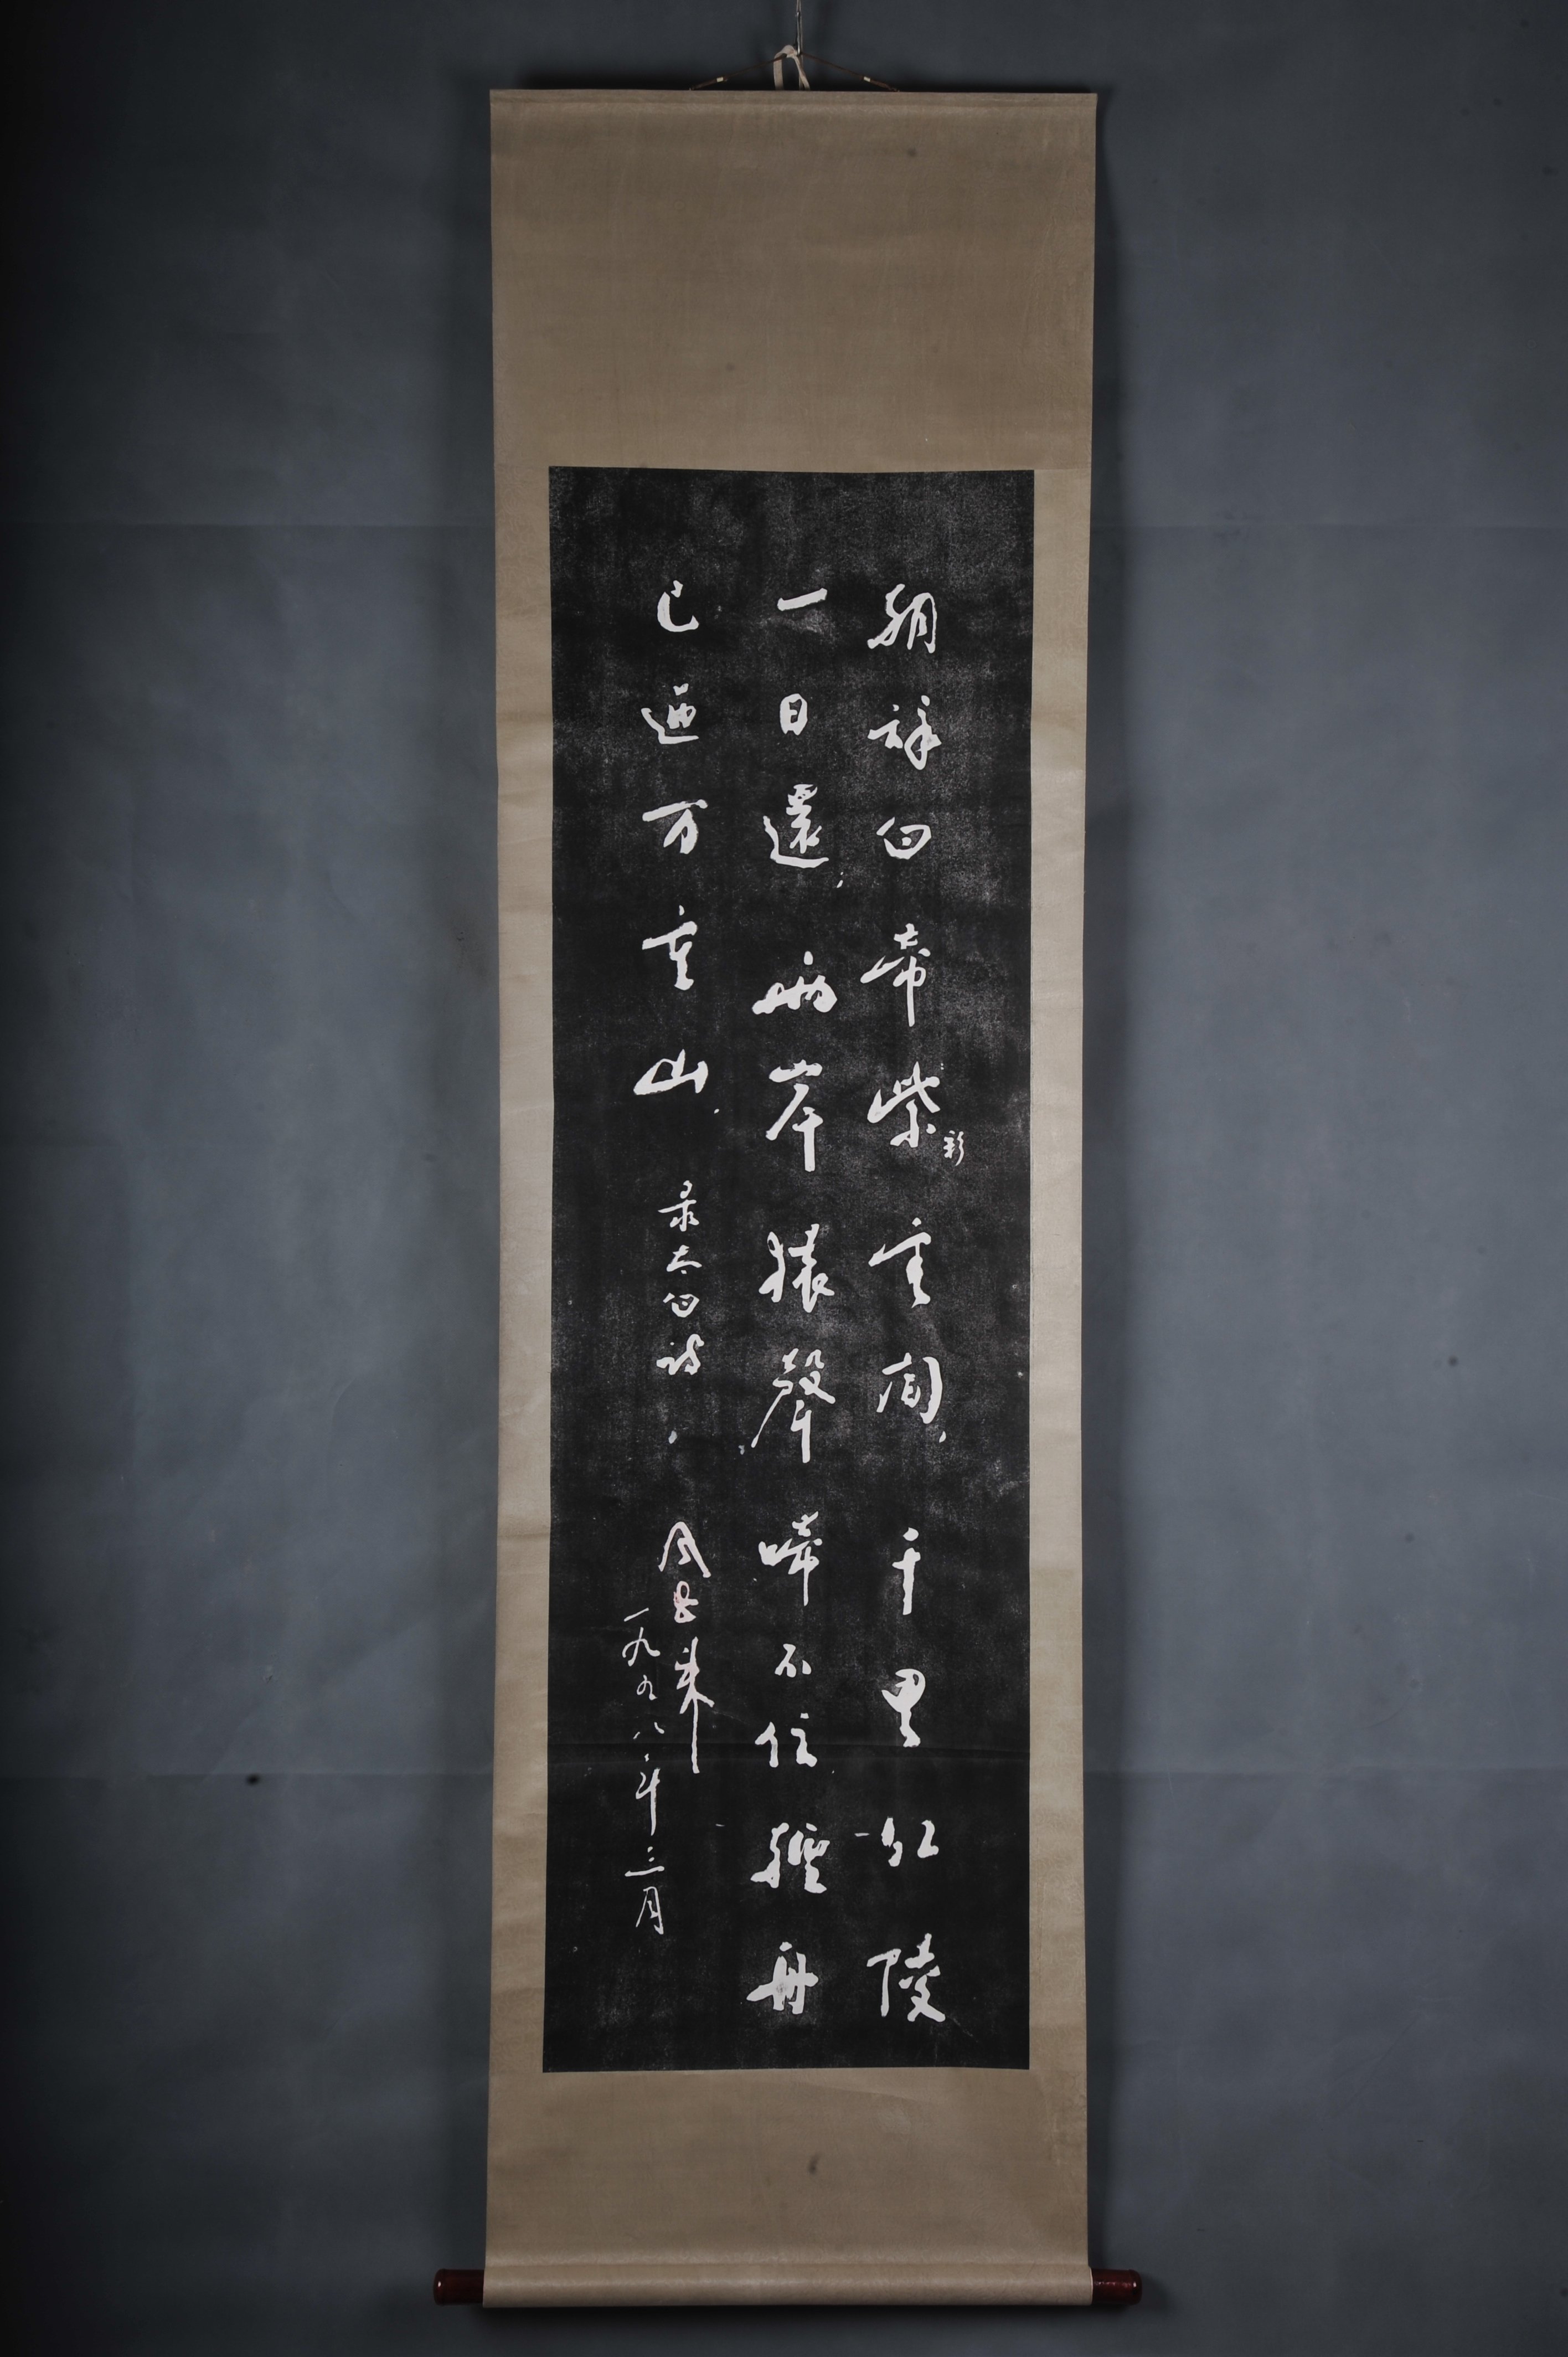 朝辞白帝紫彩雲间，千里江陵
一日還；兩岸猿聲啼不住輕舟
已過万重山。录太白诗、周恩来
一九五八、年三月